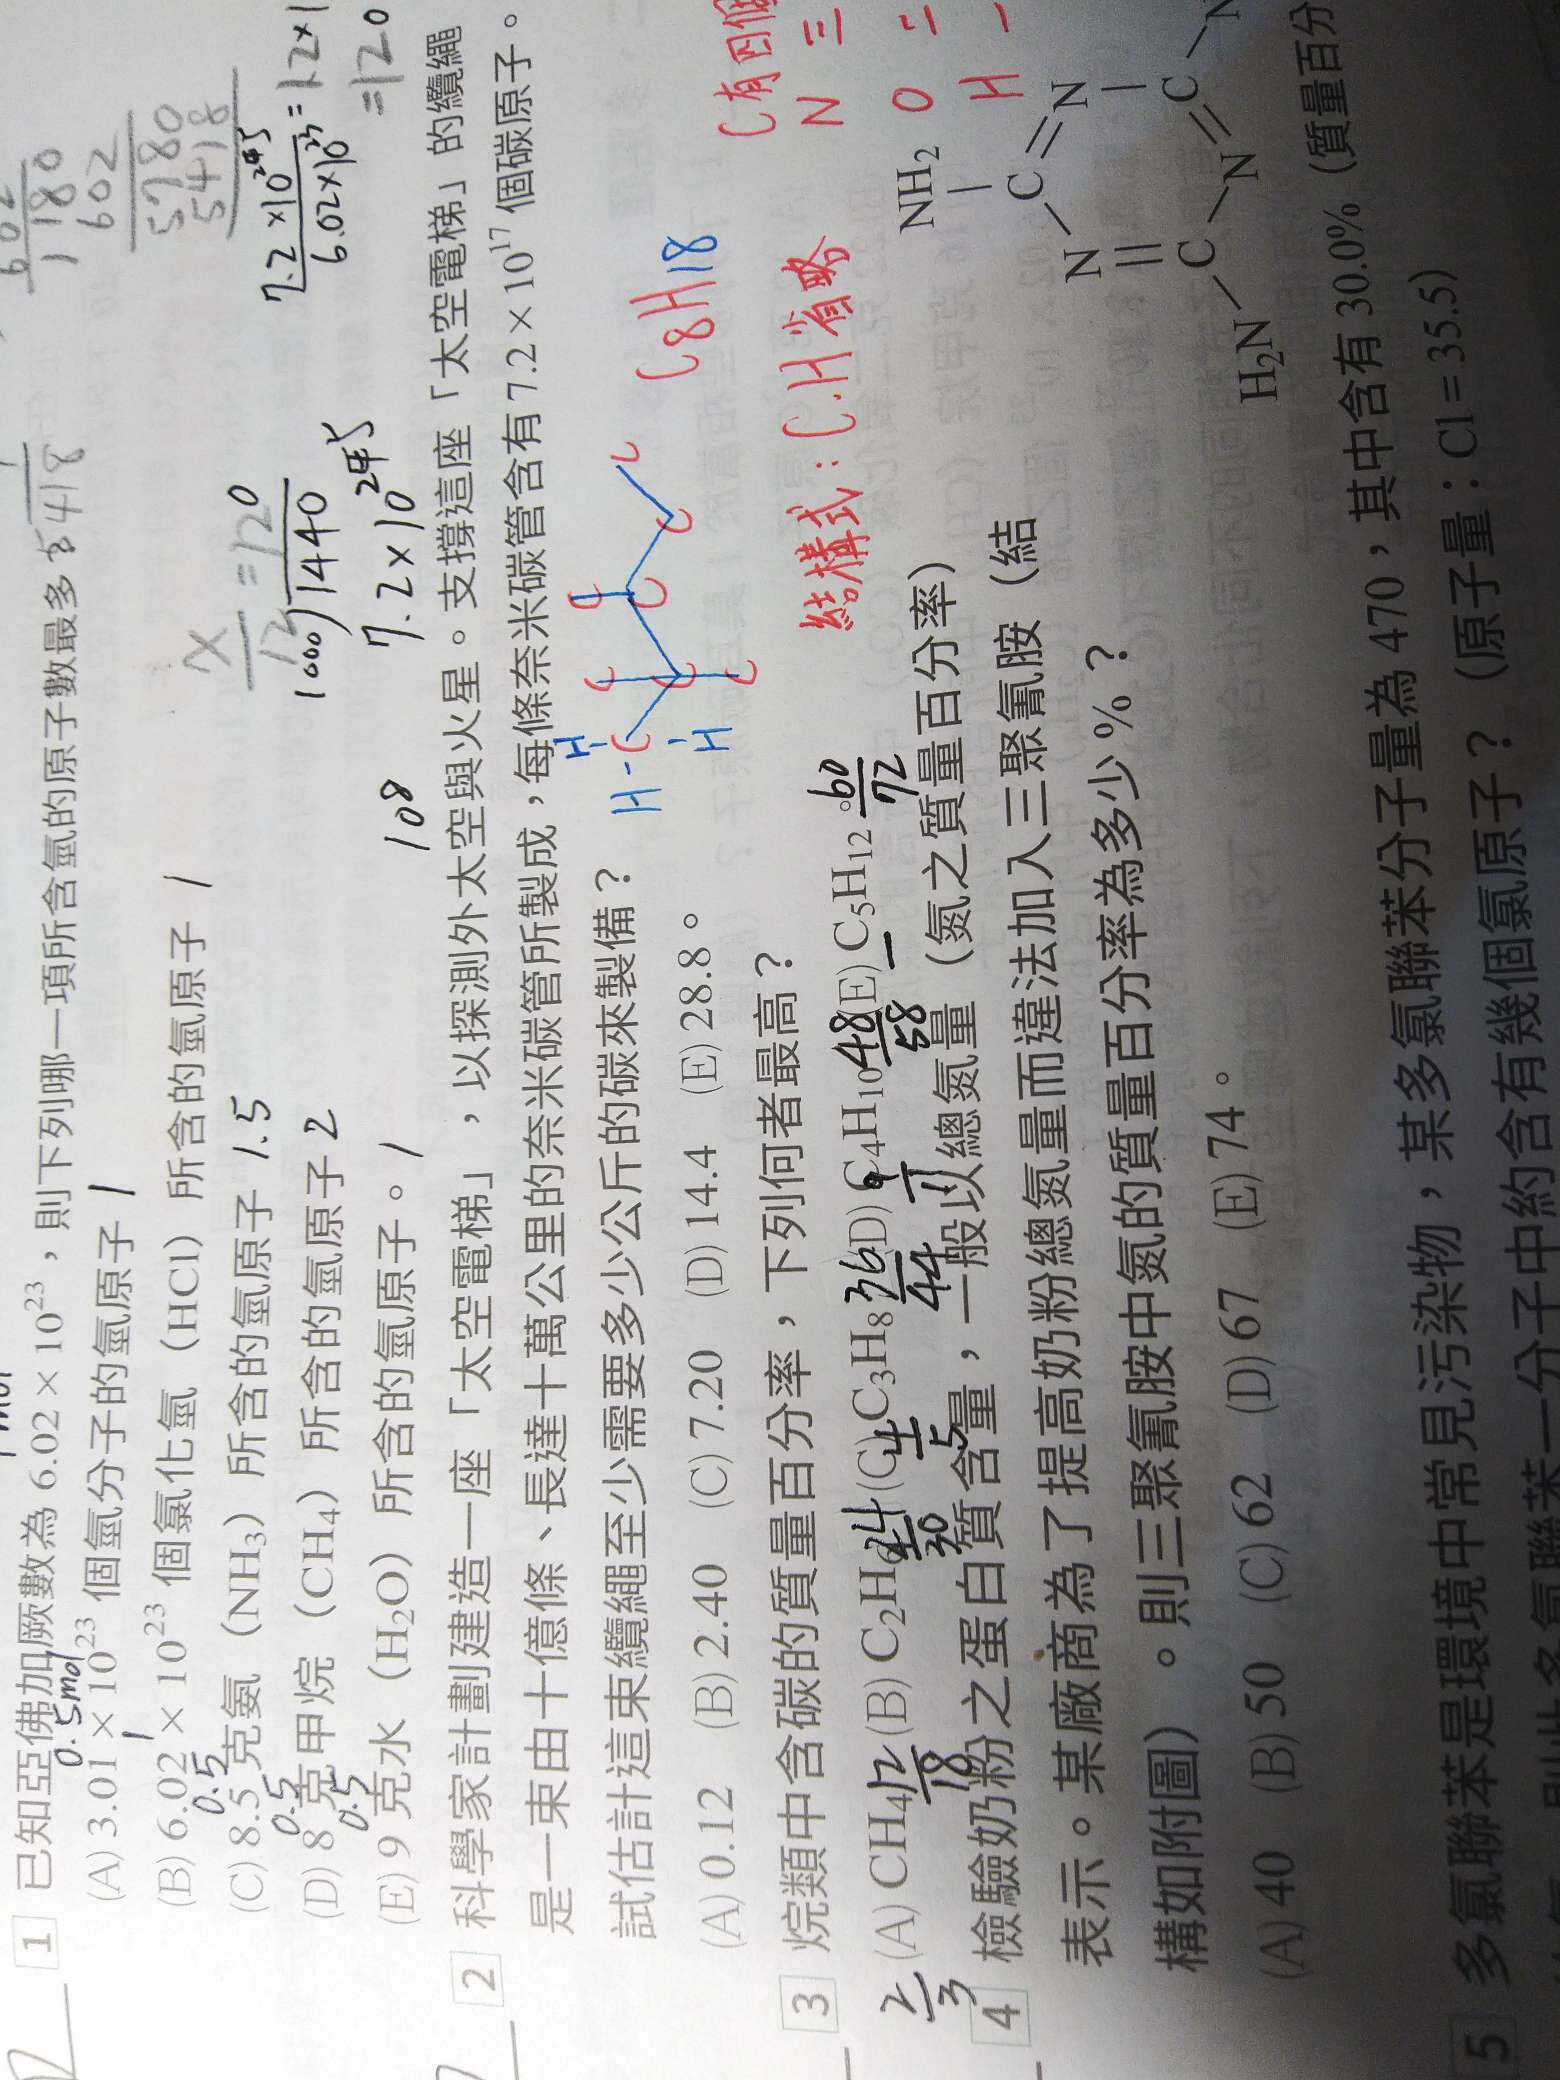 1 已知亞佛加厥數為 6.02 × 10²³，則下列哪一項所含氫的原子數最多？
0.5mol
(A) 3.01 × 10²³ 個氫分子的氫原子 1
1
(B) 6.02 × 10²³ 個氯化氫（HCl）所含的氫原子 1
0.5
(C) 8.5 克氨（NH₃）所含的氫原子 1.5
0.5
(D) 8 克甲烷（CH₄）所含的氫原子 2
0.5
(E) 9 克水（H₂O）所含的氫原子。 1
602
1180
602
5780
5418
5418
x/12=120
1000)1440
7.2×10
10⁸
6.02×10²³
=120
2 科學家計劃建造一座「太空電梯」，以探測外太空與火星。支撐這座「太空電梯」的纜繩
是一束由十億條、長達十萬公里的奈米碳管所製成，每條奈米碳管含有 7.2 × 10¹⁷ 個碳原子。
試估計這束纜繩至少需要多少公斤的碳來製備？
(A) 0.12 (B) 2.40 (C) 7.20 (D) 14.4 (E) 28.8。
H-C
H
H
C C C C C C C
C8H18
3 烷類中含碳的質量百分率，下列何者最高？
(A) CH₄ (B) C₂H₆ (C) C₃H₈ (D) C₄H₁₀ (E) C₅H₁₂。
12/18 24/30 36/44 48/58 60/72
2/3 4/5 9/11
結構式：C.H省略
C有四個
N 三
O =
H -
4 檢驗奶粉之蛋白質含量，一般以總氮量（氮之質量百分率）
表示。某廠商為了提高奶粉總氮量而違法加入三聚氰胺（結
構如附圖）。則三聚氰胺中氮的質量百分率為多少%？
(A) 40 (B) 50 (C) 62 (D) 67 (E) 74。
NH₂
C
N N
C C
H₂N N N
5 多氯聯苯是環境中常見污染物，某多氯聯苯分子量為 470，其中含有 30.0%（質量百分
一分子中約含有幾個氯原子？（原子量：Cl = 35.5）